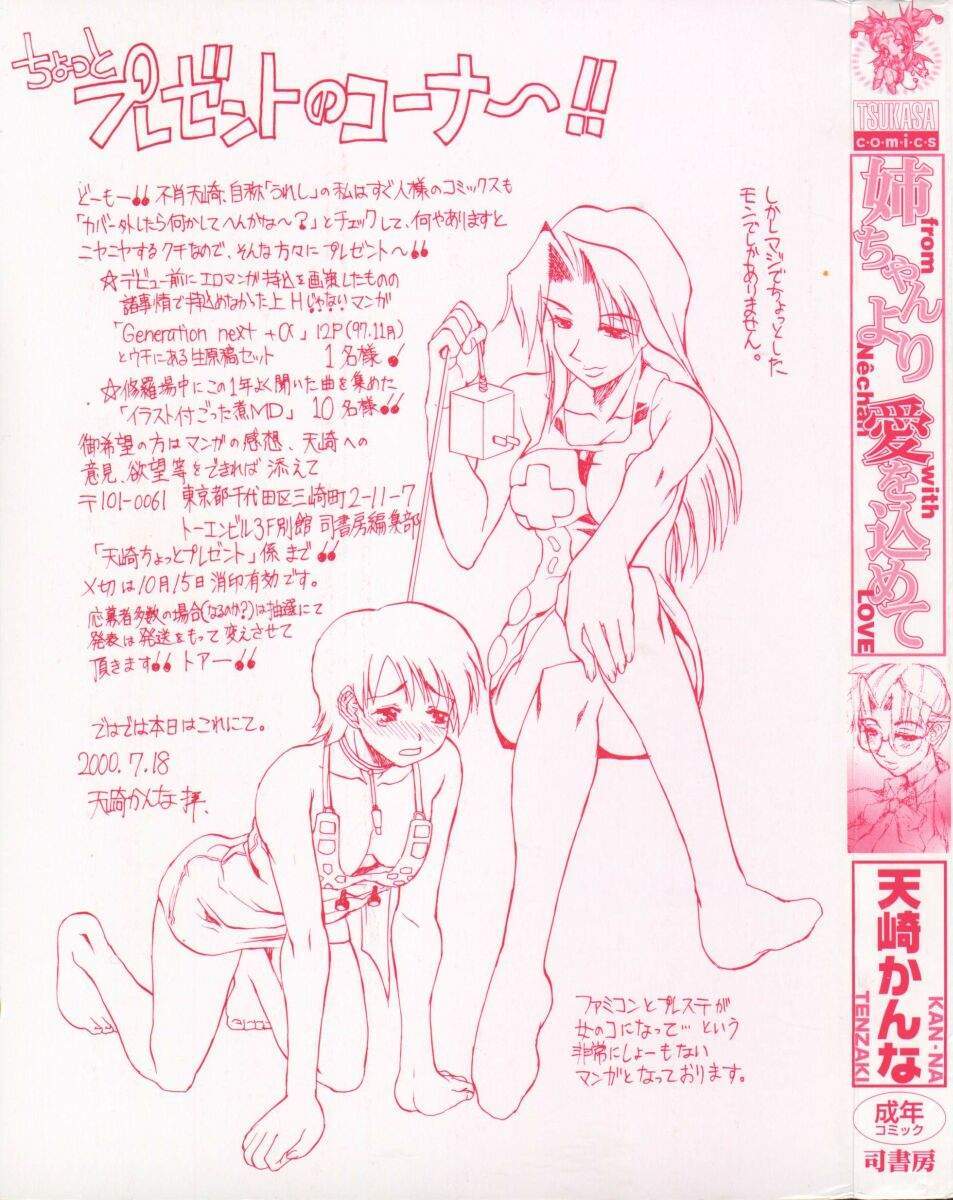 ちょっと
プレゼントのコーナ〜!!
どーもー!! 不肖天崎、自称「うれし」の私はすぐ人様のコミックスも
「カバー外したら何かしてへんがな〜?」とチェックして、何やありますと
ニヤニヤするクチなので、そんな方々にプレゼント〜!!
☆デビュー前にエロマンガ持込を画策したものの
諸事情で持込めなかった上Hじゃないマンガ
「Generation next +α」12P(97.11月)
とウチにある生原稿セット 1名様!
☆修羅場中にこの1年よく聞いた曲を集めた
「イラスト付ごった煮MD」 10名様!!
御希望の方はマンガの感想、天崎への
意見、欲望等をできれば添えて
〒101-0061 東京都千代田区三崎町2-11-7
トーエンビル3F別館 司書房編集部
「天崎ちょっとプレゼント」係まで!!
〆切は10月15日消印有効です。
応募者多数の場合(なるのか?)は抽選にて
発表は発送をもって変えさせて
頂きます!! トァー!!
ではでは本日はこれにて。
2000.7.18
天崎かんな 拝.
しかしマジでちょっとした
モンでしかありません。
ファミコンとプレステが
女のコになって…という
非常にしょーもない
マンガとなっております。
TSUKASA
c・o・m・i・c・s
姉ちゃんより愛を込めて
from Nêchan with LOVE
天崎かんな
KAN-NA
TENZAKI
成年
コミック
司書房